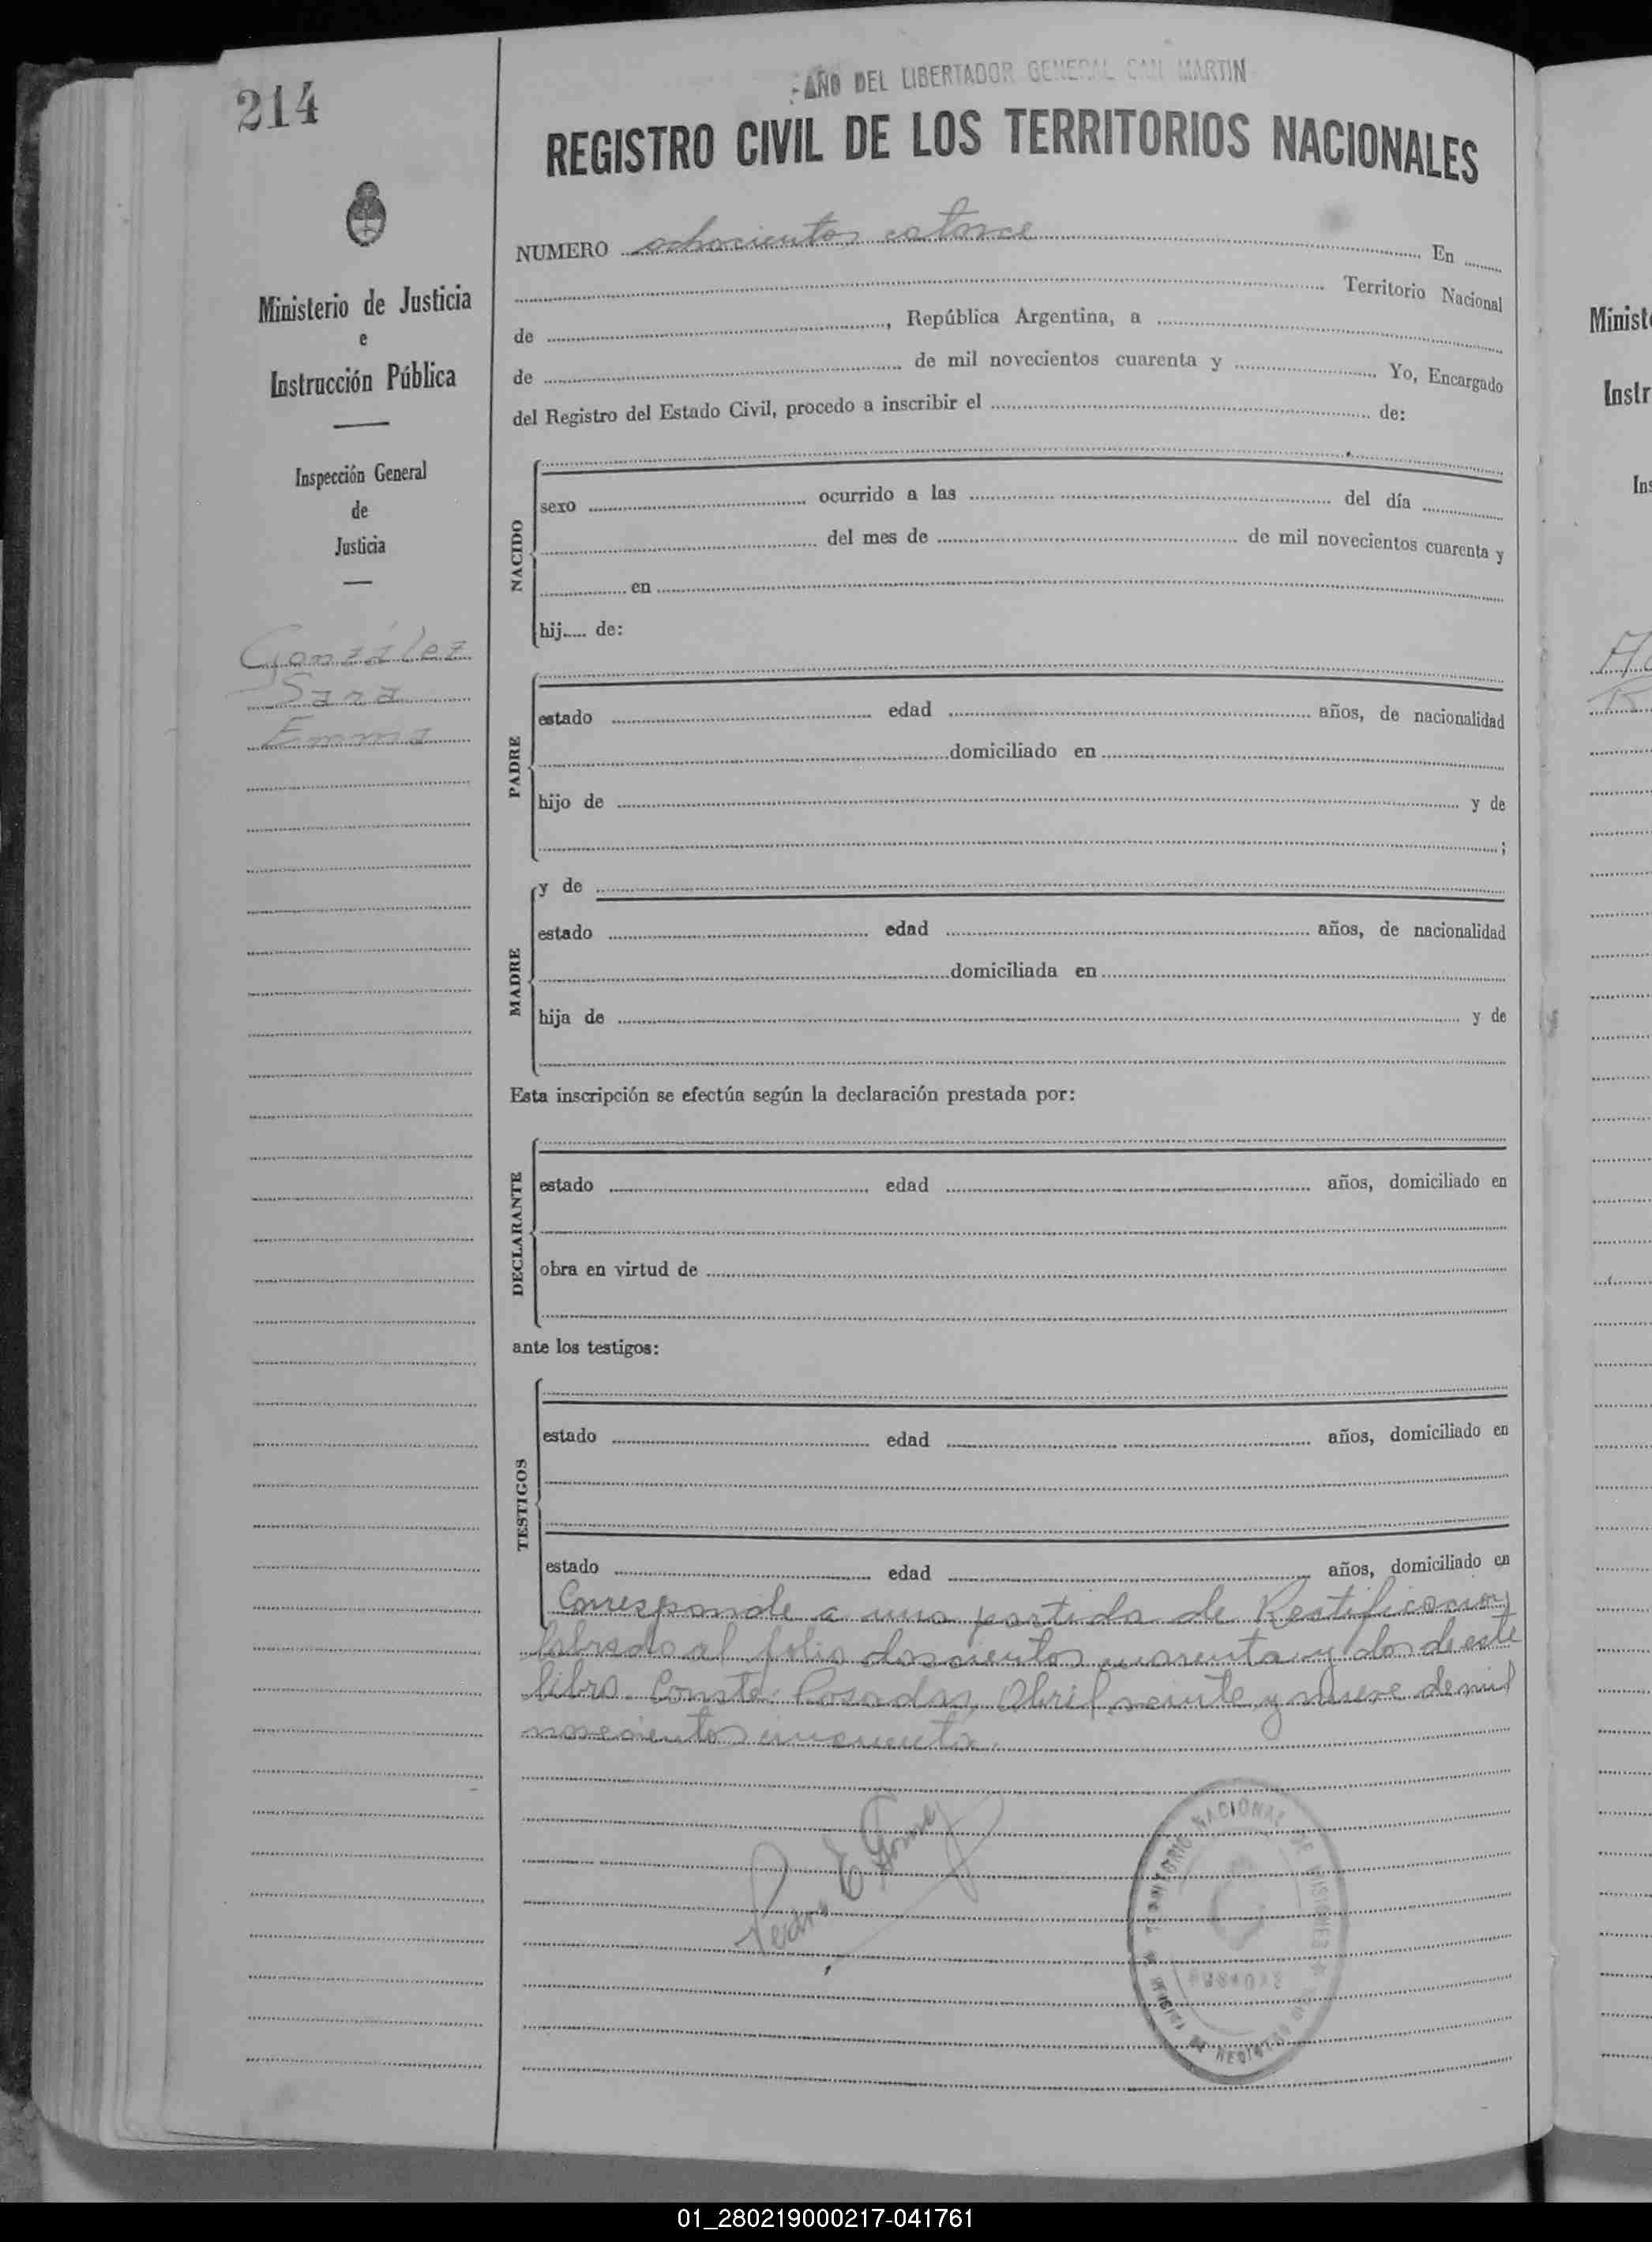 AÑO DEL LIBERTADOR GENERAL SAN MARTIN
214
REGISTRO CIVIL DE LOS TERRITORIOS NACIONALES
Ministerio de Justicia
e
Instrucción Pública
Inspección General
de
Justicia
González
Sara
Emma
NUMERO ochocientos catorce En
Territorio Nacional
de , República Argentina, a
de de mil novecientos cuarenta y Yo, Encargado
del Registro del Estado Civil, procedo a inscribir el de:
NACIDO
sexo ocurrido a las del día
del mes de de mil novecientos cuarenta y
en
hij..... de:
PADRE
estado edad años, de nacionalidad
domiciliado en
hijo de y de
;
MADRE
y de
estado edad años, de nacionalidad
domiciliada en
hija de y de
Esta inscripción se efectúa según la declaración prestada por:
DECLARANTE
estado edad años, domiciliado en
obra en virtud de
ante los testigos:
TESTIGOS
estado edad años, domiciliado en
estado edad años, domiciliado en
Corresponde a una partida de Rectificacion
labrada al folio doscientos cuarenta y dos de este
libro. Conste. Posadas, Abril veinte y nueve de mil
novecientos cincuenta.
Pedro E Gomez
TERRITORIO NACIONAL DE MISIONES
Minist
Instr
Ins
01_280219000217-041761